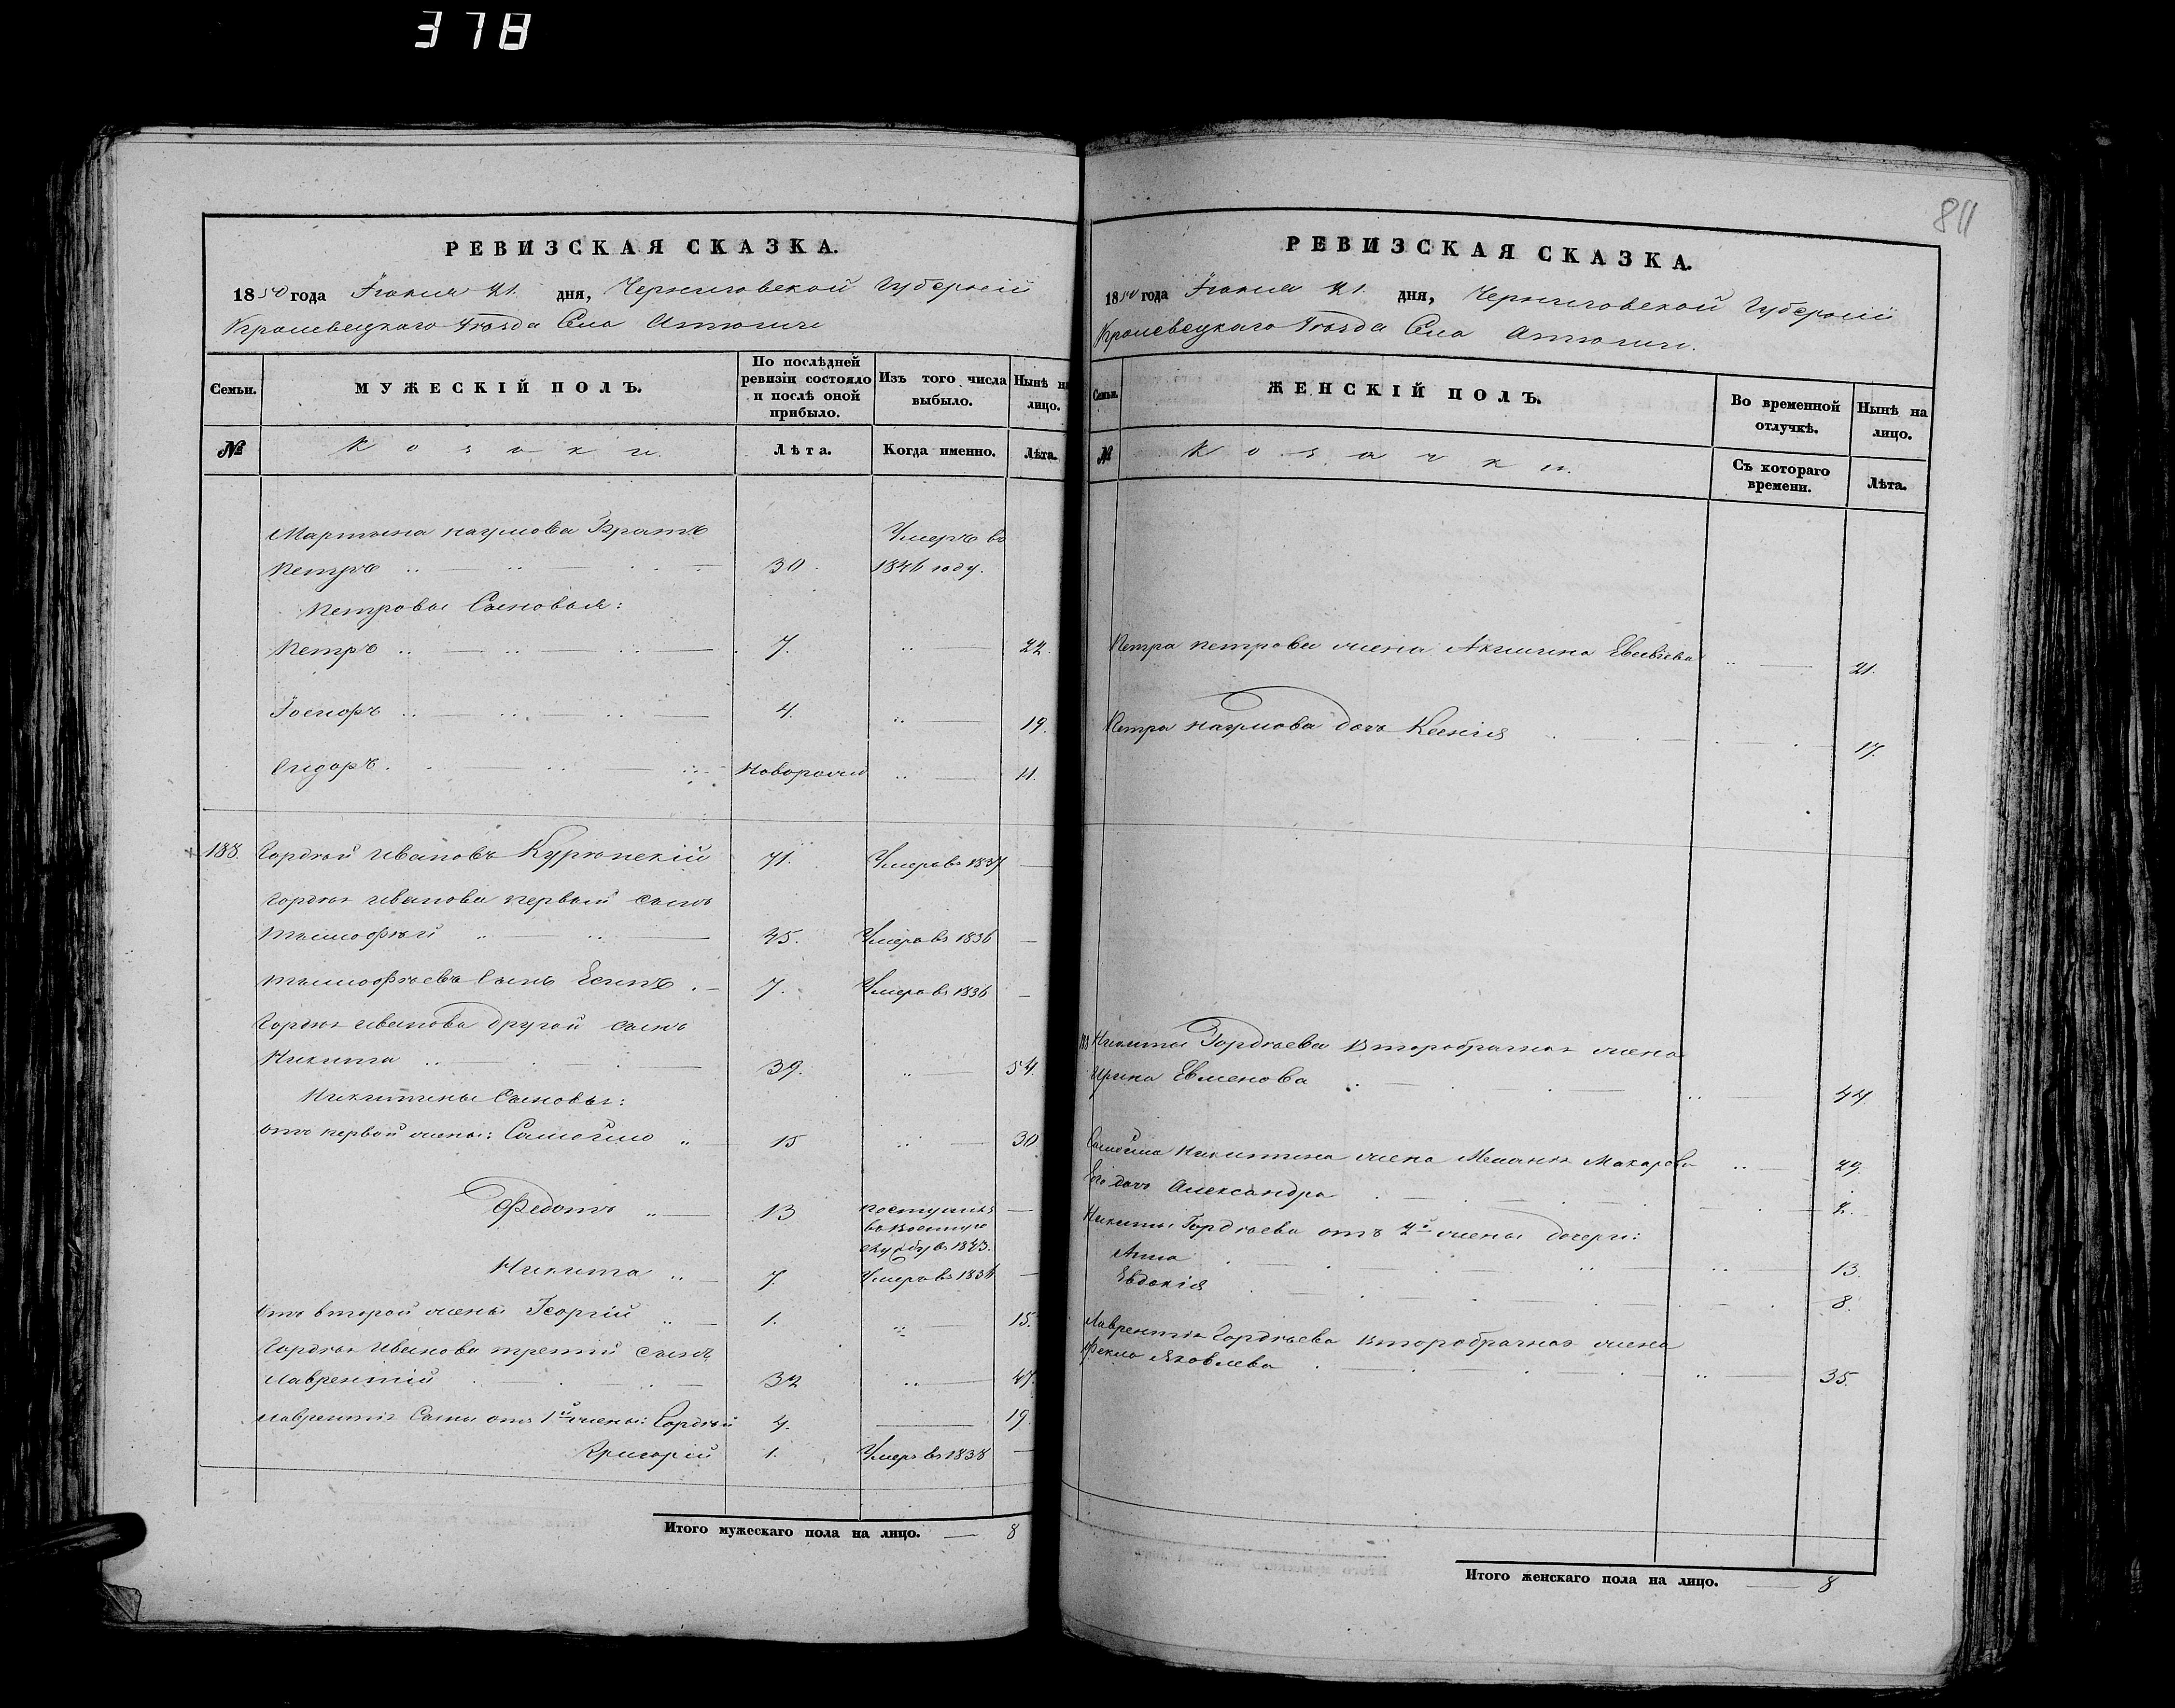 378
811
РЕВИЗСКАЯ СКАЗКА.
1850 года Іюния 21. дня, Черниговской Губерніи
Кролевецкаго Уѣзда Села Атюши
Семьи. МУЖЕСКІЙ ПОЛЪ. По послѣдней ревизіи состояло и послѣ оной прибыло. Изъ того числа выбыло. Нынѣ на лицо.
№ Козаки. Лѣта. Когда именно. Лѣта.
Мартына Наумова Братъ Умеръ въ
Петръ 30. 1846 году.
Петровы Сыновья:
Петръ 7. 22.
Іосифъ 4. 19.
Сидоръ Новорожд 11.
188. Гордѣй Ивановъ 71. Умеръ въ 1837
Гордѣя Иванова первый сынъ
Тимофѣй 45. Умеръ въ 1836
Тимофѣевъ Сынъ Есипъ 7. Умеръ въ 1836
Гордѣя Иванова другой сынъ
Никита 39. 54.
Никитины Сыновья:
отъ первой жены: Самойло 15 30
Федотъ 13 поступилъ
въ военную
службу въ 1843.
Никита 7 Умеръ въ 1836
Отъ второй жены Георгій 1. 15.
Гордѣя Иванова третій сынъ
Лаврентій 32 47.
Лаврентія Сыны отъ 1й жены: Гордѣй 4. 19.
Григорій 1. Умеръ въ 1838
Итого мужескаго пола на лицо. 8
РЕВИЗСКАЯ СКАЗКА.
1850 года Іюния 21. дня, Черниговской Губерніи
Кролевецкаго Уѣзда Села Атюши.
Семьи. ЖЕНСКІЙ ПОЛЪ. Во временной отлучкѣ. Нынѣ на лицо.
№ Козачки. Съ котораго времени. Лѣта.
Петра Петрова жена Акилина 21.
Петра Наумова дочь Ксенія 17.
188 Никиты Гордѣева Второбрачная жена
Ирина Евменова 44
Самойла Никитина жена Меланія Макарова 29.
Его дочь Александра 2.
Никиты Гордѣева отъ 2й жены дочери:
Анна 13.
Евдокія 8.
Лаврентія Гордѣева Второбрачная жена
Фекла Яковлева 35.
Итого женскаго пола на лицо. 8